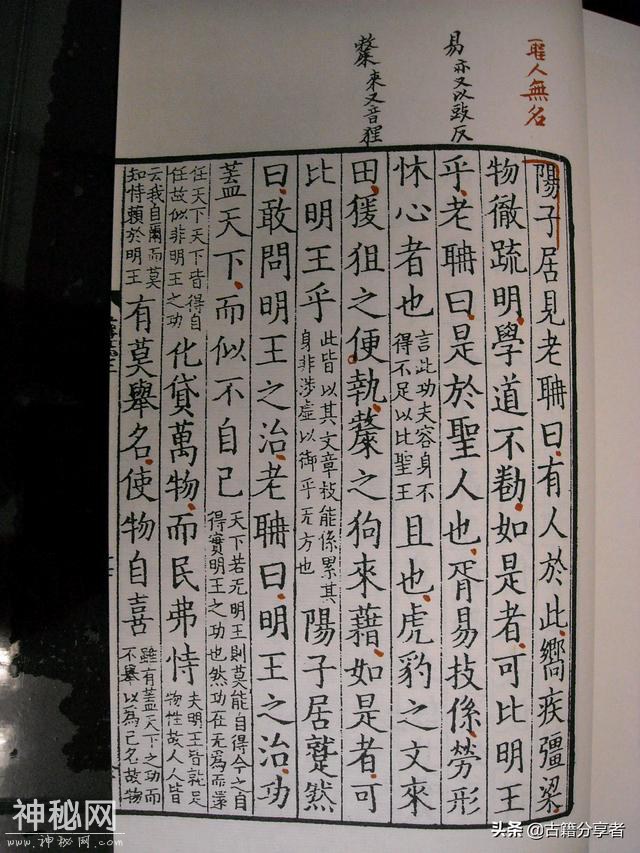 聖人無名
易亦又以豉反
斄來又音狸
陽子居見老耼曰有人於此嚮疾彊梁
物徹疏明學道不勌如是者可比明王
乎老耼曰是於聖人也胥易技係勞形
怵心者也言此功夫容身不得不足以比聖王且也虎豹之文來
田猨狙之便執斄之狗來藉如是者可
比明王乎此皆以其文章技能係累其身非涉虛以御乎无方也陽子居蹵然
曰敢問明王之治老耼曰明王之治功
蓋天下而似不自己天下若无明王則莫能自得今之自得實明王之功也然功在无爲而還
任天下天下皆得自任故似非明王之功化貸萬物而民弗恃夫明王皆就足物性故人人皆
云我自爾而莫知恃賴於明王有莫舉名使物自喜雖有蓋天下之功而不舉以為己名故物
神秘网
www.神秘网.com
头条 @古籍分享者